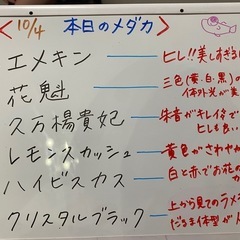 10/4
< 本日のメダカ >
エメキン ヒレ!!美しすぎる
花魁 三色(黄・白・黒)
体外光が美
久万楊貴妃 朱音がキレイで
ヒレも長い
レモンスカッシュ 黄色がさわやか
ハイビスカス 白と赤でお花の
クリスタルブラック 上から見てのラメ
だるま体型が人